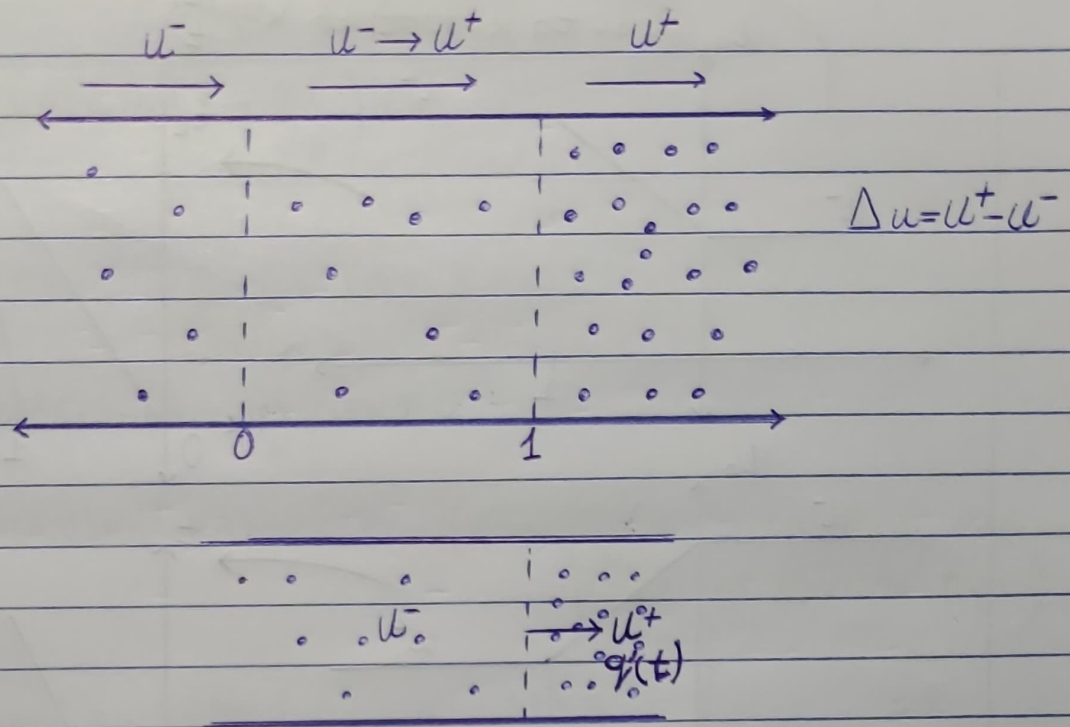 u⁻ u⁻→u⁺ u⁺
Δu=u⁺-u⁻
0 1
u⁻ u⁺